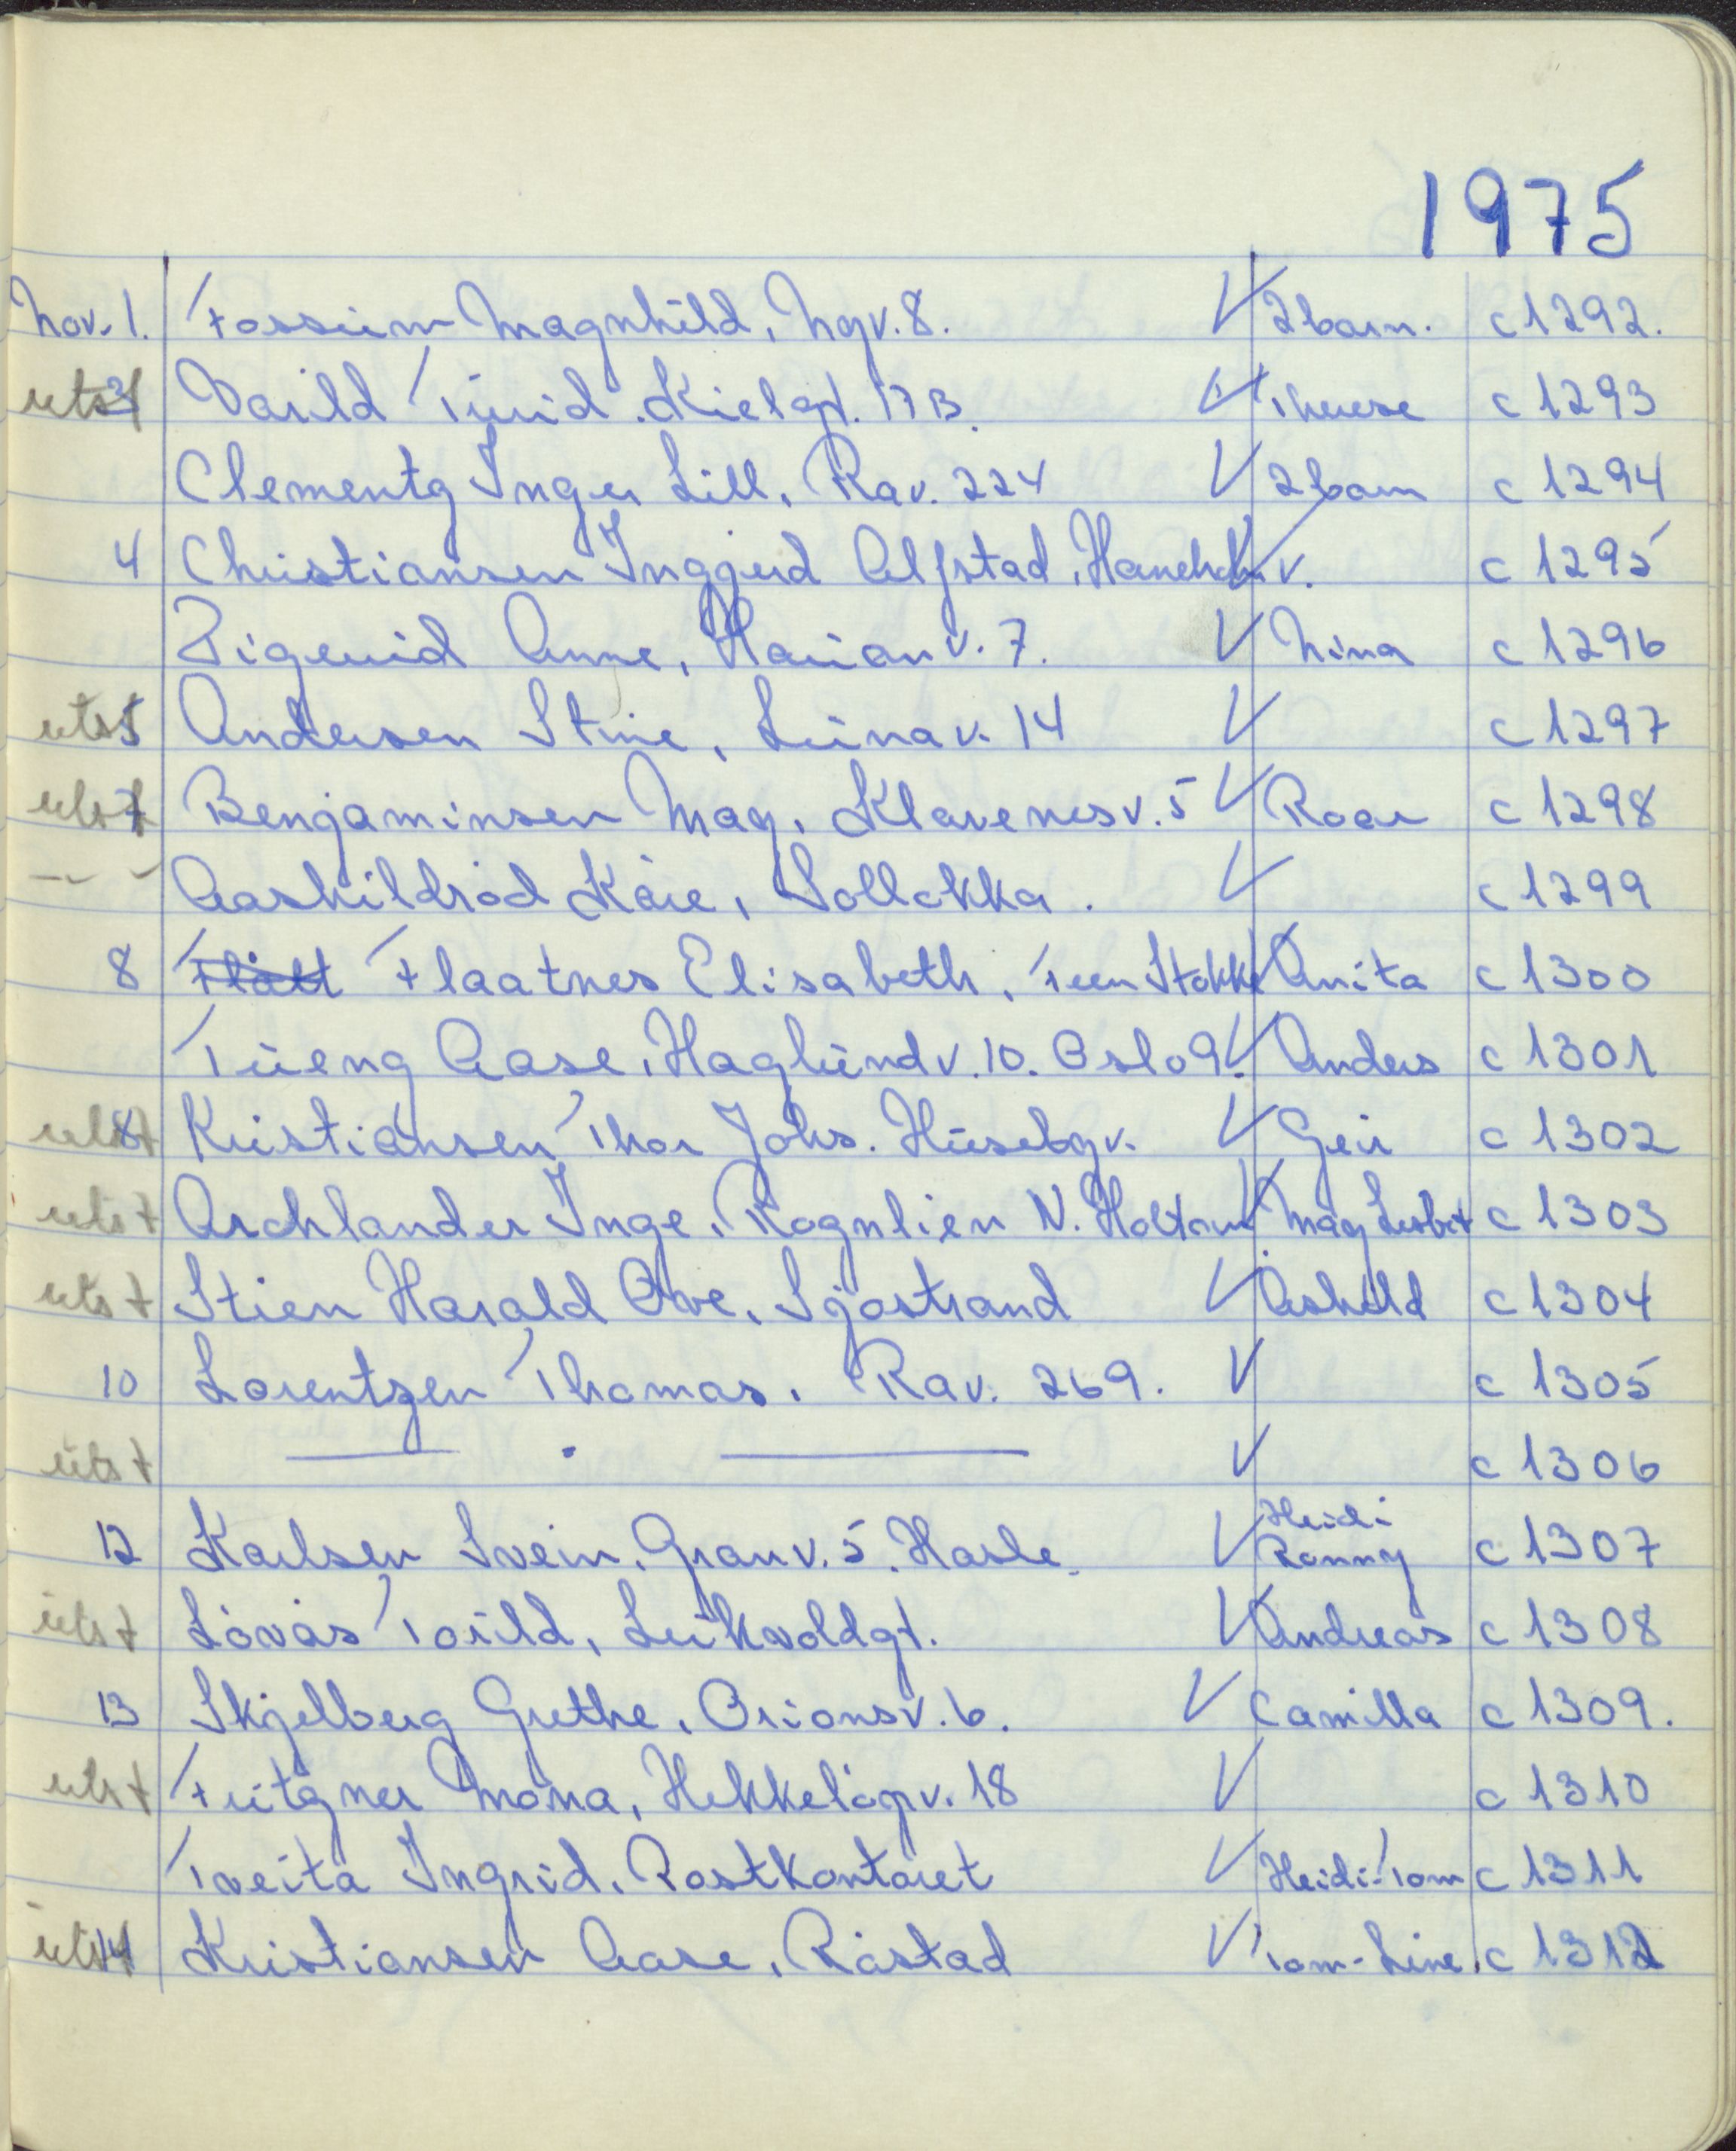 1975
Nov. 1. Fossum Magnhild, Ngv. 8. V 2 barn. c 1292.
utst Varild Turid. Kielgt. 17 B. V Therese c 1293
Clementz Inger Lill, Rav. 224 V 2 barn c 1294
4 Christiansen Inggjerd Alfstad, V v. c 1295
Anne, V Nina c 1296
utst 5 Andersen Stine, Lunav. 14 V c 1297
utst 7 Benjaminsen May, Klavenesv. 5 V Roar c 1298
Aaskildrød Kåre, Solløkka. V c 1299
8 Flått Flaatnes Elisabeth, Teen Stokke V Anita c 1300
Tueng Aase, Haglundv. 10. Oslo 9. V Anders c 1301
utst 8 Kristiansen Thor Johs. Husebyv. V Geir c 1302
utst Archlander Inge, Rognlien N. Holtan V May Lisbet c 1303
utst Stien Harald Ove, Sjøstrand V Åshild c 1304
10 Lorentzen Thomas. Rav. 269. V c 1305
utst — . — V c 1306
12 Karlsen Svein, Granv. 5. Hasle. V Heidi Ronny c 1307
utst Løvås Torild, Leikvoldgt. V Andreas c 1308
13 Skjelberg Grethe, Orionsv. 6. V Camilla c 1309.
utst Mona, V c 1310
Tveita Ingrid, Postkontoret V Heidi-Tom c 1311
utst 14 Kristiansen Aase, Råstad V Tom-Line c 1312